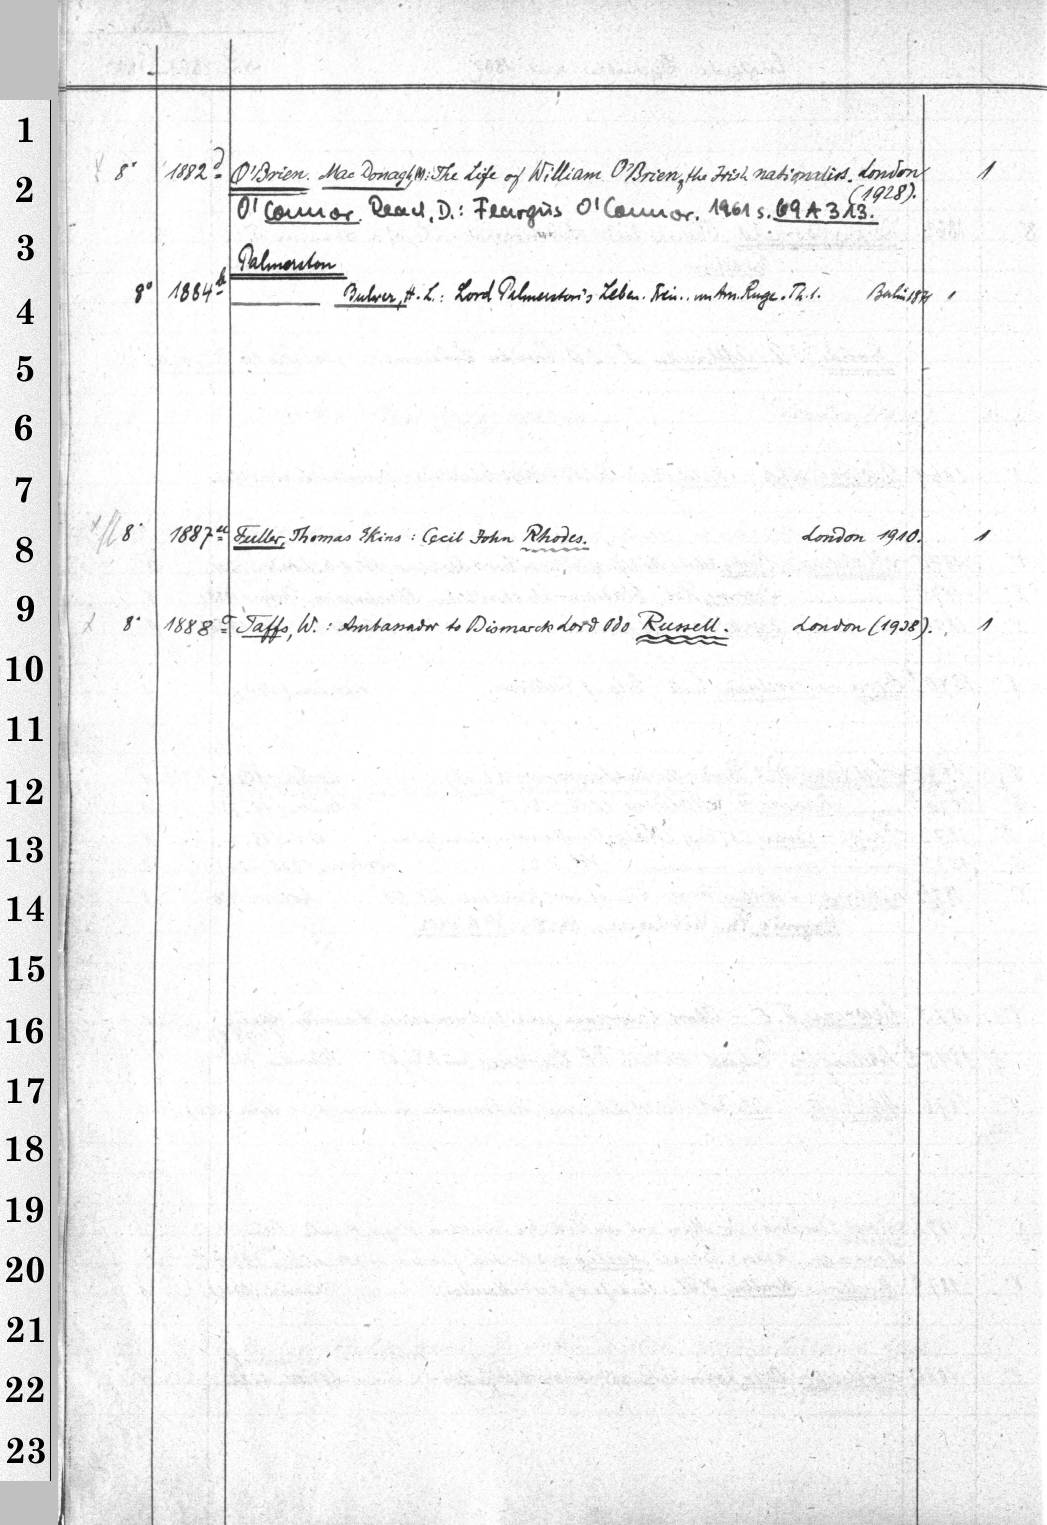 8° 1882d O'Brien. Mac Donagh, M.: The Life of William O'Brien, the Irish nationalist. London 1
(1928).
O'Connor. Read, D.: Feargus O'Connor. 1961 s. 69 A 313.
Palmerston
8° 1884b Bulwer, H. L.: Lord Palmerston's Leben. Th. 1. Berlin 1871 1
8° 1887a Fuller, Thomas Ekins: Cecil John Rhodes. London 1910. 1
8° 1888c Taffs, W.: Ambassador to Bismarck Lord Odo Russell. London (1938). 1
1
2
3
4
5
6
7
8
9
10
11
12
13
14
15
16
17
18
19
20
21
22
23